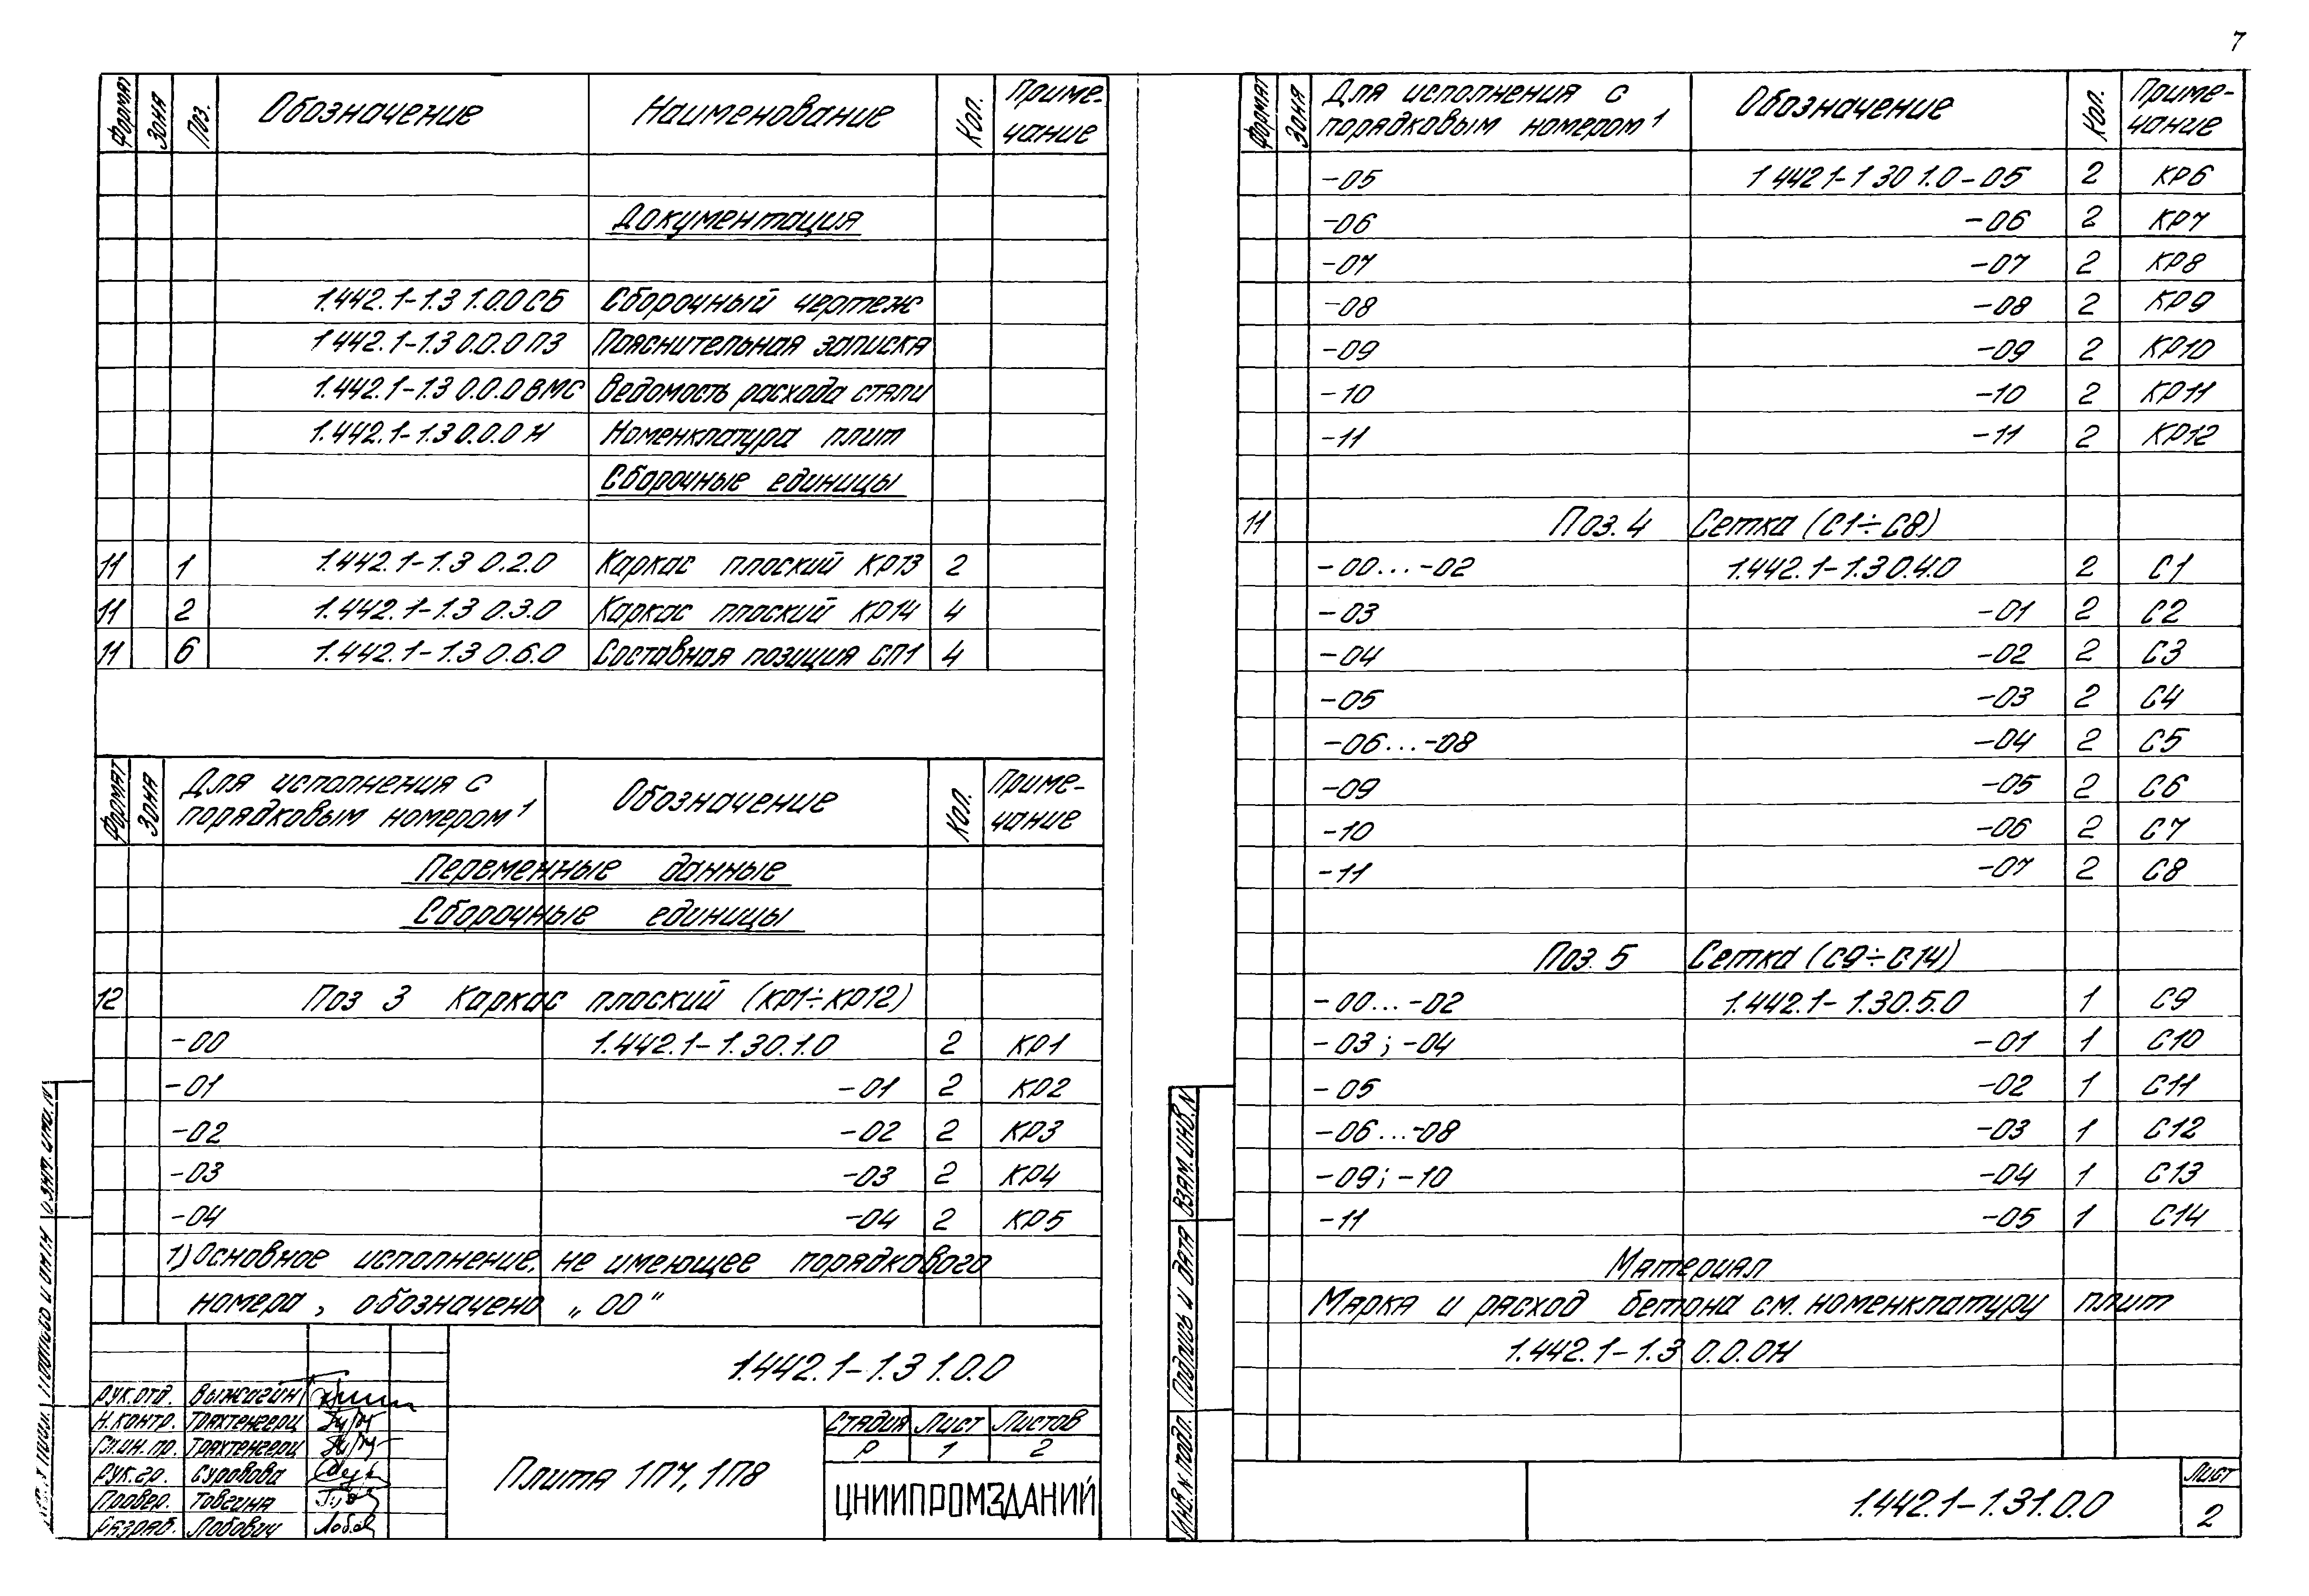 7
Формат Зона Поз. Обозначение Наименование Кол. Приме-
чание
Документация
1.442.1-1.3 1.0.0СБ Сборочный чертеж
1 442.1-1.3 0.0.0ПЗ Пояснительная записка
1.442.1-1.3 0.0.0ВМС Ведомость расхода стали
1.442.1-1.3 0.0.0 Н Номенклатура плит
Сборочные единицы
11 1 1.442.1-1.3 0.2.0 Каркас плоский КР13 2
11 2 1.442.1-1.3 0.3.0 Каркас плоский КР14 4
11 6 1.442.1-1.3 0.6.0 Составная позиция СП1 4
Формат Зона Для исполнения с
порядковым номером¹ Обозначение Кол. Приме-
чание
Переменные данные
Сборочные единицы
12 Поз 3 Каркас плоский (КР1÷КР12)
-00 1.442.1-1.30.1.0 2 КР1
-01 -01 2 КР2
-02 -02 2 КР3
-03 -03 2 КР4
-04 -04 2 КР5
1) Основное исполнение, не имеющее порядкового
номера, обозначено „00"
1.442.1-1.3 1.0.0
Рук.отд. Выжигин
Н.контр. Трахтенгерц
Гл.ин.пр. Трахтенгерц
Рук.гр. Суровова
Провер. Товгина
Разраб. Лобович
Плита 1П7, 1П8
Стадия Лист Листов
Р 1 2
ЦНИИПРОМЗДАНИЙ
Формат Зона Для исполнения с
порядковым номером¹ Обозначение Кол. Приме-
чание
-05 1 442 1-1 30 1.0-05 2 КР6
-06 -06 2 КР7
-07 -07 2 КР8
-08 -08 2 КР9
-09 -09 2 КР10
-10 -10 2 КР11
-11 -11 2 КР12
11 Поз. 4 Сетка (С1÷С8)
-00...-02 1.442.1-1.30.4.0 2 С1
-03 -01 2 С2
-04 -02 2 С3
-05 -03 2 С4
-06...-08 -04 2 С5
-09 -05 2 С6
-10 -06 2 С7
-11 -07 2 С8
Поз. 5 Сетка (С9÷С14)
-00...-02 1.442.1-1.30.5.0 1 С9
-03; -04 -01 1 С10
-05 -02 1 С11
-06...-08 -03 1 С12
-09; -10 -04 1 С13
-11 -05 1 С14
Материал
Марка и расход бетона см. номенклатуру плит
1.442.1-1.3 0.0.0Н
Инв.N подл. Подпись и дата Взам.инв.N
1.442.1-1.31.0.0
Лист
2